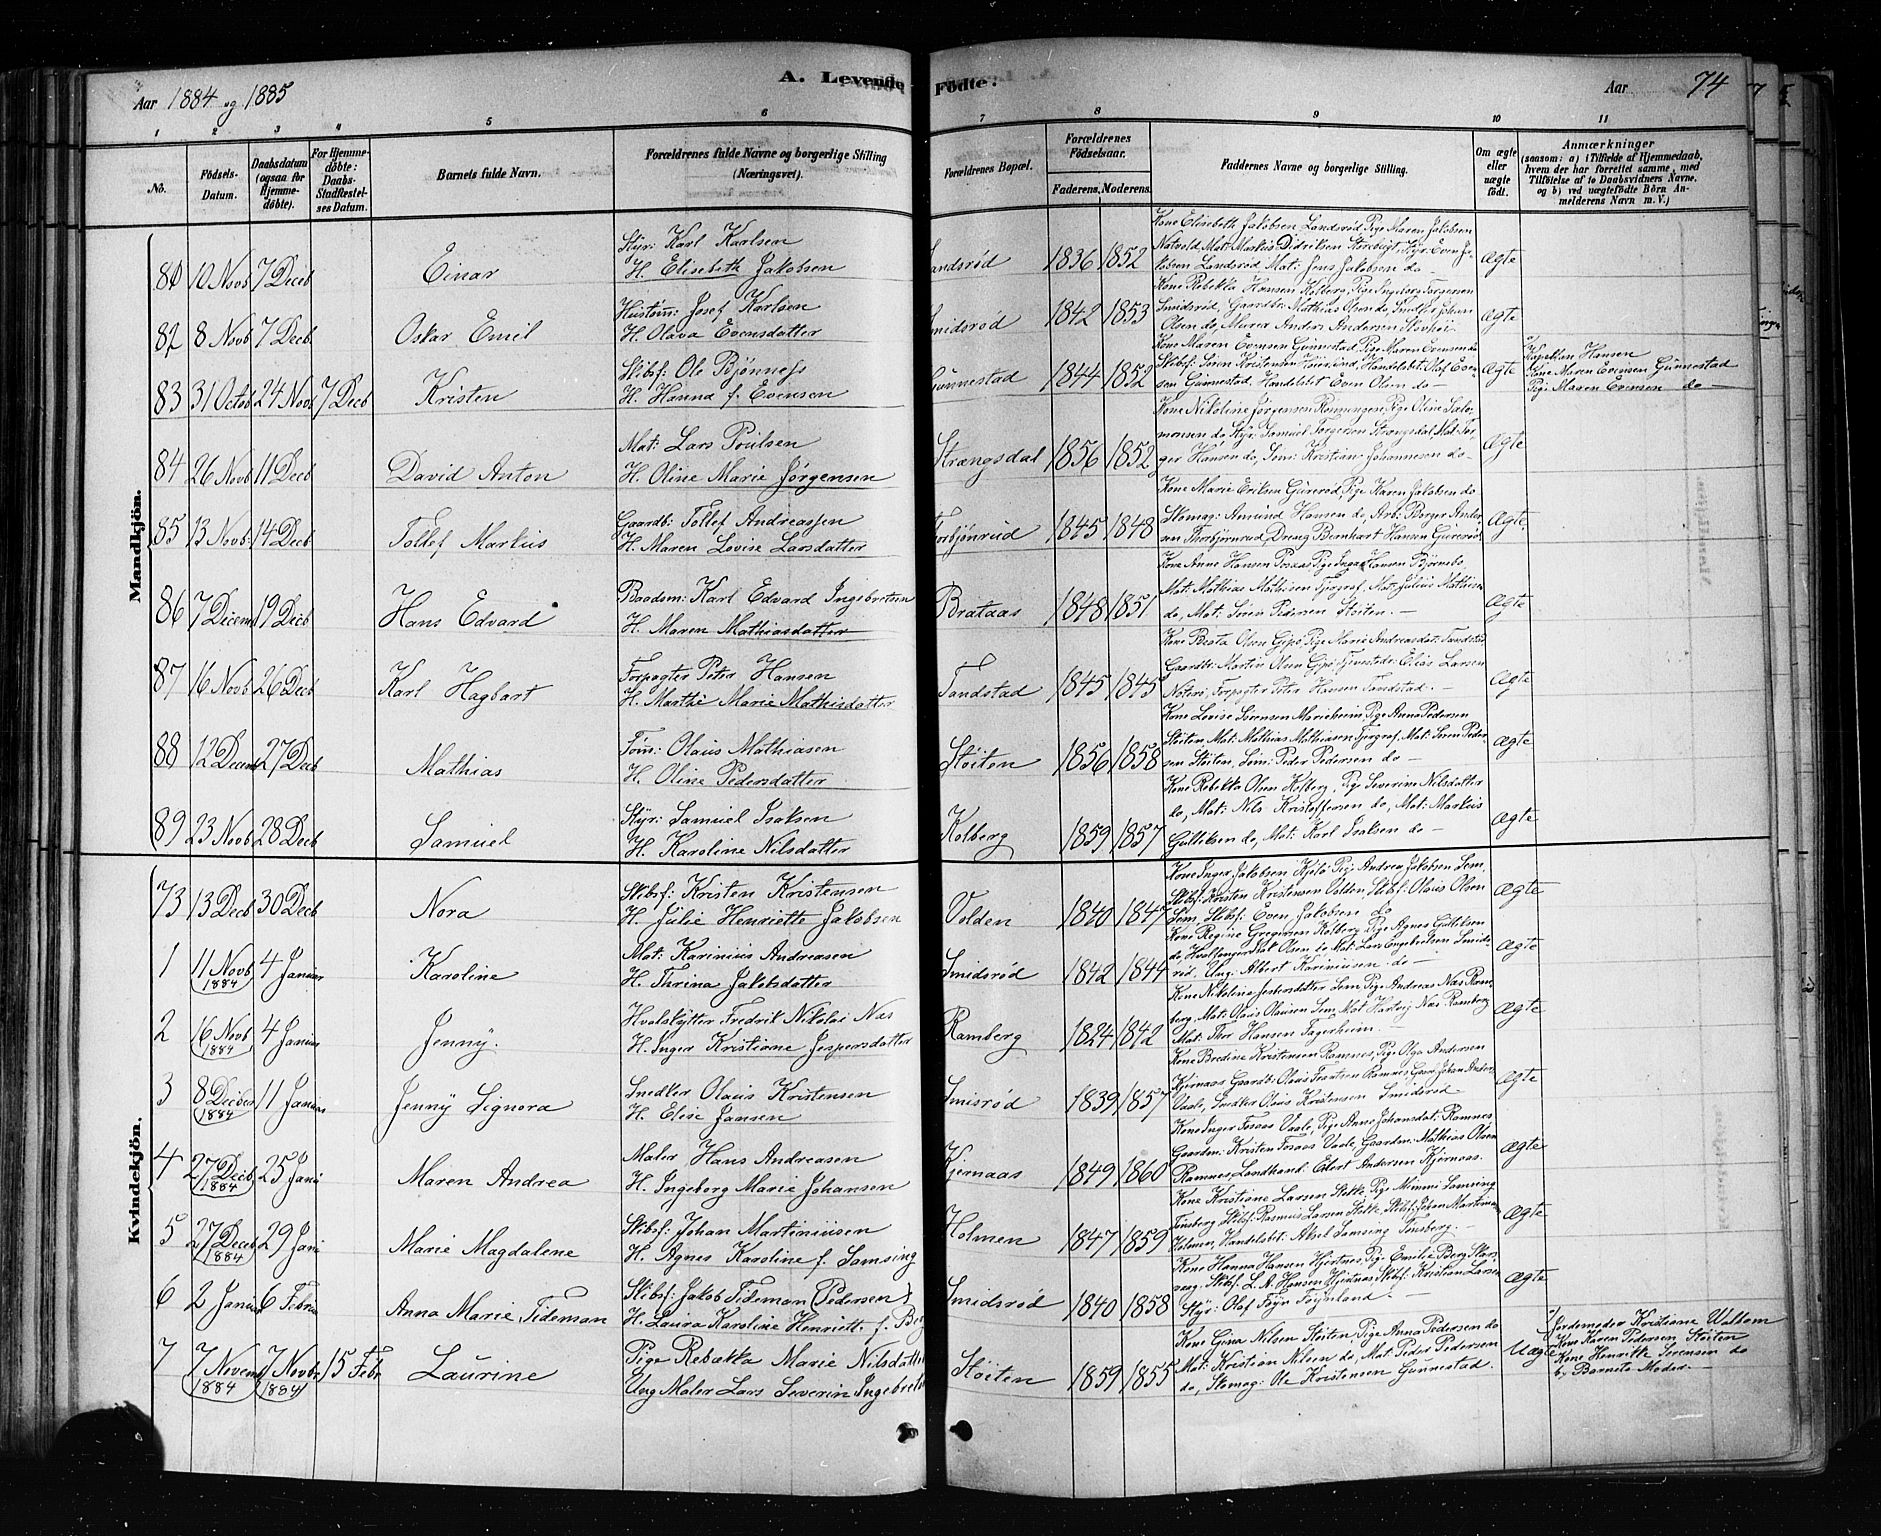 Aar 1884 og 1885
A. Levende Födte.
Aar 74
1 2 3 4 5 6 7 8 9 10 11
No.
Födsels-Datum.
Daabsdatum (ogsaa for Hjemme-döbte).
For Hjemme-döbte: Daabs-Stadfæstel-ses Datum.
Barnets fulde Navn.
Forældrenes fulde Navne og borgerlige Stilling (Næringsvei).
Forældrenes Bopæl.
Forældrenes Födselsaar.
Faderens. Moderens.
Faddernes Navne og borgerlige Stilling.
Om ægte eller uægte födt.
Anmærkninger
(saasom: a) i Tilfælde af Hjemmedaab, hvem der har forrettet samme, med Tilföielse af to Daabsvidners Navne, og b) ved uægtefödte Börn An-melderens Navn m. V.)
Mandkjön.
81 10 Novb 7 Decb Einar
Styr: Karl Karlsen
H. Elisebeth Jakobsen
Landsröd 1836 1852
Kone Elisebeth Jakobsen Landsröd, Pige Maren Jakobsen
Natvold, Mat: Markus Didriksen Strebugt, Styr: Even Ja-
kobsen Landsröd, Mat: Jens Jakobsen do
Ægte
82 8 Novb 7 Decb. Oskar Emil
Hustöm: Josef Karlsen
H. Olava Evensdatter
Smidsröd 1842 1853
Kone Rebekka Hansen Kolberg, Pige Ingeborg Torgersen
Smidsröd, Gaardbr: Mathias Olsen do, Johan
Olsen do, Murer Anders Andersen
Ægte
83 31 Octob 24 Novb 7 Decb Kristen
Skibsf: Ole Bjönness
H. Hanna f. Evensen
Gunnestad 1844 1852
Kone Maren Evensen Gunnestad, Pige Maren Evensen do
Skibsf: Sören Kristensen, Handelsbet: Olaf Even-
sen Gunnestad, Handelsbet Even Olsen do
Ægte
a) Kapellan Hansen
Kone Maren Evensen Gunnestad
Pige Maren Evensen do
84 26 Novb 11 Decb David Anton
Mat: Lars Poulsen
H. Oline Marie Jörgensen
Strængsdal 1856 1852
Kone Nikoline Jörgensen Rönningen, Pige Oline Salo-
monsen do, Styr: Samuel Torgersen Strængsdal, Mat: Tor-
ger Hansen do, Söm: Kristian Johannesen do
Ægte
85 13 Novb 14 Decb Tollef Markus
Gaardb: Tollef Andreassen
H. Maren Lovise Larsdatter
Torbjönrud 1845 1848
Kone Marie Eriksen Gureröd, Pige Karen Jakobsen do
Skomag: Amund Hansen do, Arb: Borger Ander-
sen Thorbjönrud, Dreng Bernhart Hansen Gureröd
Ægte.
86 7 Decemb 19 Decb Hans Edvard
Baadsm: Karl Edvard Ingebretsen
H. Maren Mathiasdatter
Brataas 1848 1851
Kone Anne Hansen, Pige Inga Hansen Björnebo
Mat: Mathias Mathisen Fjergraf, Mat: Julius Mathisen
do, Mat: Sören Pedersen Stöiten.
Ægte
87 16 Novb 26 Decb Karl Hagbart
Forpagter Peter Hansen
H. Marthe Marie Mathisdatter
Tandstad 1845 1845
Kone Beata Olsen Gipö, Pige Marie Andreasdat: Tandstad,
Gaardb: Martin Olsen Gipö, Tjenestedr: Elias Larsen
Nöterö, Forpagter Peter Hansen Tandstad.
Ægte
88 12 Decemb 27 Decb Mathias
Töm: Olaus Mathiasen
H. Oline Pedersdatter
Stöiten 1856 1858
Kone Lovise Sörensen Marieheim, Pige Anna Pedersen
Stöiten, Mat: Mathias Mathiasen Fjergraf, Mat: Sören Peder-
sen Stöiten, Söm: Peder Pedersen do
Ægte
89 23 Novb 28 Decb Samuel
Styr: Samuel Isaksen
H. Karoline Nilsdatter
Kolberg 1859 1857
Kone Rebekka Olsen Kolberg, Pige Severine Nilsdatter
do, Mat: Nils Kristoffersen do, Mat: Markus
Gulliksen do, Mat: Karl Isaksen do
Ægte
Kvindekjön.
73 13 Decb 30 Decb Nora
Skibsf: Kristen Kristensen
H. Julie Henriette Jakobsen
Volden 1840 1847
Kone Inger Jakobsen Kjelö, Pige Andrea Jakobsen Sem,
Skibsf: Kristen Kristensen Volden, Skibsf: Olaus Olsen
Sem, Skibsf: Even Jakobsen do
Ægte
1 11 Novb 1884 4 Januar Karoline
Mat: Karinius Andreasen
H. Thrina Jakobsdatter
Smidsröd 1842 1844
Kone Regine Gregersen Kolberg, Pige Agnes Gulliksen
do, Hvalfanger Isak Olsen do, Mat: Lars Engebretsen Smids-
röd, Ung: Albert Karinusen do
Ægte
2 16 Novb 1884 4 Januar Jenny.
Hvalskytter Fredrik Nikolai Næs
H. Inger Kristiane Jespersdatter
Ramberg 1824 1842
Kone Nikoline Jespersdatter Sem, Pige Andreas Næs Ram-
berg, Mat: Olaus Olausen Sem, Mat: Hartvig Næs Ramberg
Mat: Thor Hansen Fagerheim
Ægte
3 8 Decber 1884 11 Januar Jenny Signora
Snedker Olaus Kristensen
H. Elise Jansen
Smisröd 1839 1857
Kone Bredine Kristensen Ramnes, Pige Olga Andersen
Kjernaas, Gaardb: Olaus Frantsen Ramnes, Gaard: Johan Anders:
Vaale, Snedker Olaus Kristensen Smidsröd
Ægte
4 27 Decb 1884 25 Janu Maren Andrea
Maler Hans Andreasen
H. Ingeborg Marie Johansen
Kjernaas 1849 1860
Kone Inger Fosaas Vaale, Pige Anne Johansdat: Ramnes
Gaardm: Kristen Fosaas Vaale, Gaardm: Mathias Olsen
Ramnes, Landhand: Edert Andersen Kjernaas.
Ægte
5 27 Decb 1884 29 Janu Marie Magdalene
Skibsf: Johan Martiniusen
H. Agnes Karoline f. Samsing
Holmen 1847 1859
Kone Kristiane Larsen Stokke, Pige Mimmi Samsing
Tönsberg, Skibsf: Rasmus Larsen Stokke, Skibsf: Johan Martinius:
Holmen, Handelsbet: Aksel Samsing Tönsberg.
Ægte
6 2 Januar 6 Febru Anna Marie Tideman
Skibsf: Jakob Tideman (Pedersen)
H. Laura Karoline Henriette f. Berg
Smidsröd 1840 1858
Kone Hanna Hansen Hjertnes, Pige Emilie Berg Stav-
ang, Skibsf. L. A. Hansen Hjertnæs, Skibsf: Kristian Larsen
Styr: Olaf Föyn Föynland.
Ægte
7 7 Novemb 1884 7 Novbr 1884 15 Febr Laurine
Pige Rebækka Marie Nilsdatter
Ung Maler Lars Severin Ingebretsen
Stöiten 1859 1855
Kone Gina Nilsen Stöiten, Pige Anna Pedersen do
Mat: Kristian Nilsen do, Mat: Peder Pedersen
do, Skomag: Ole Kristensen Gunnestad.
Uægte
a) Jordemoder Kristiane Wallem
Kone Karen Pedersen Stöiten
Kone Henrikke Sörensen do
b) Barnets Moder